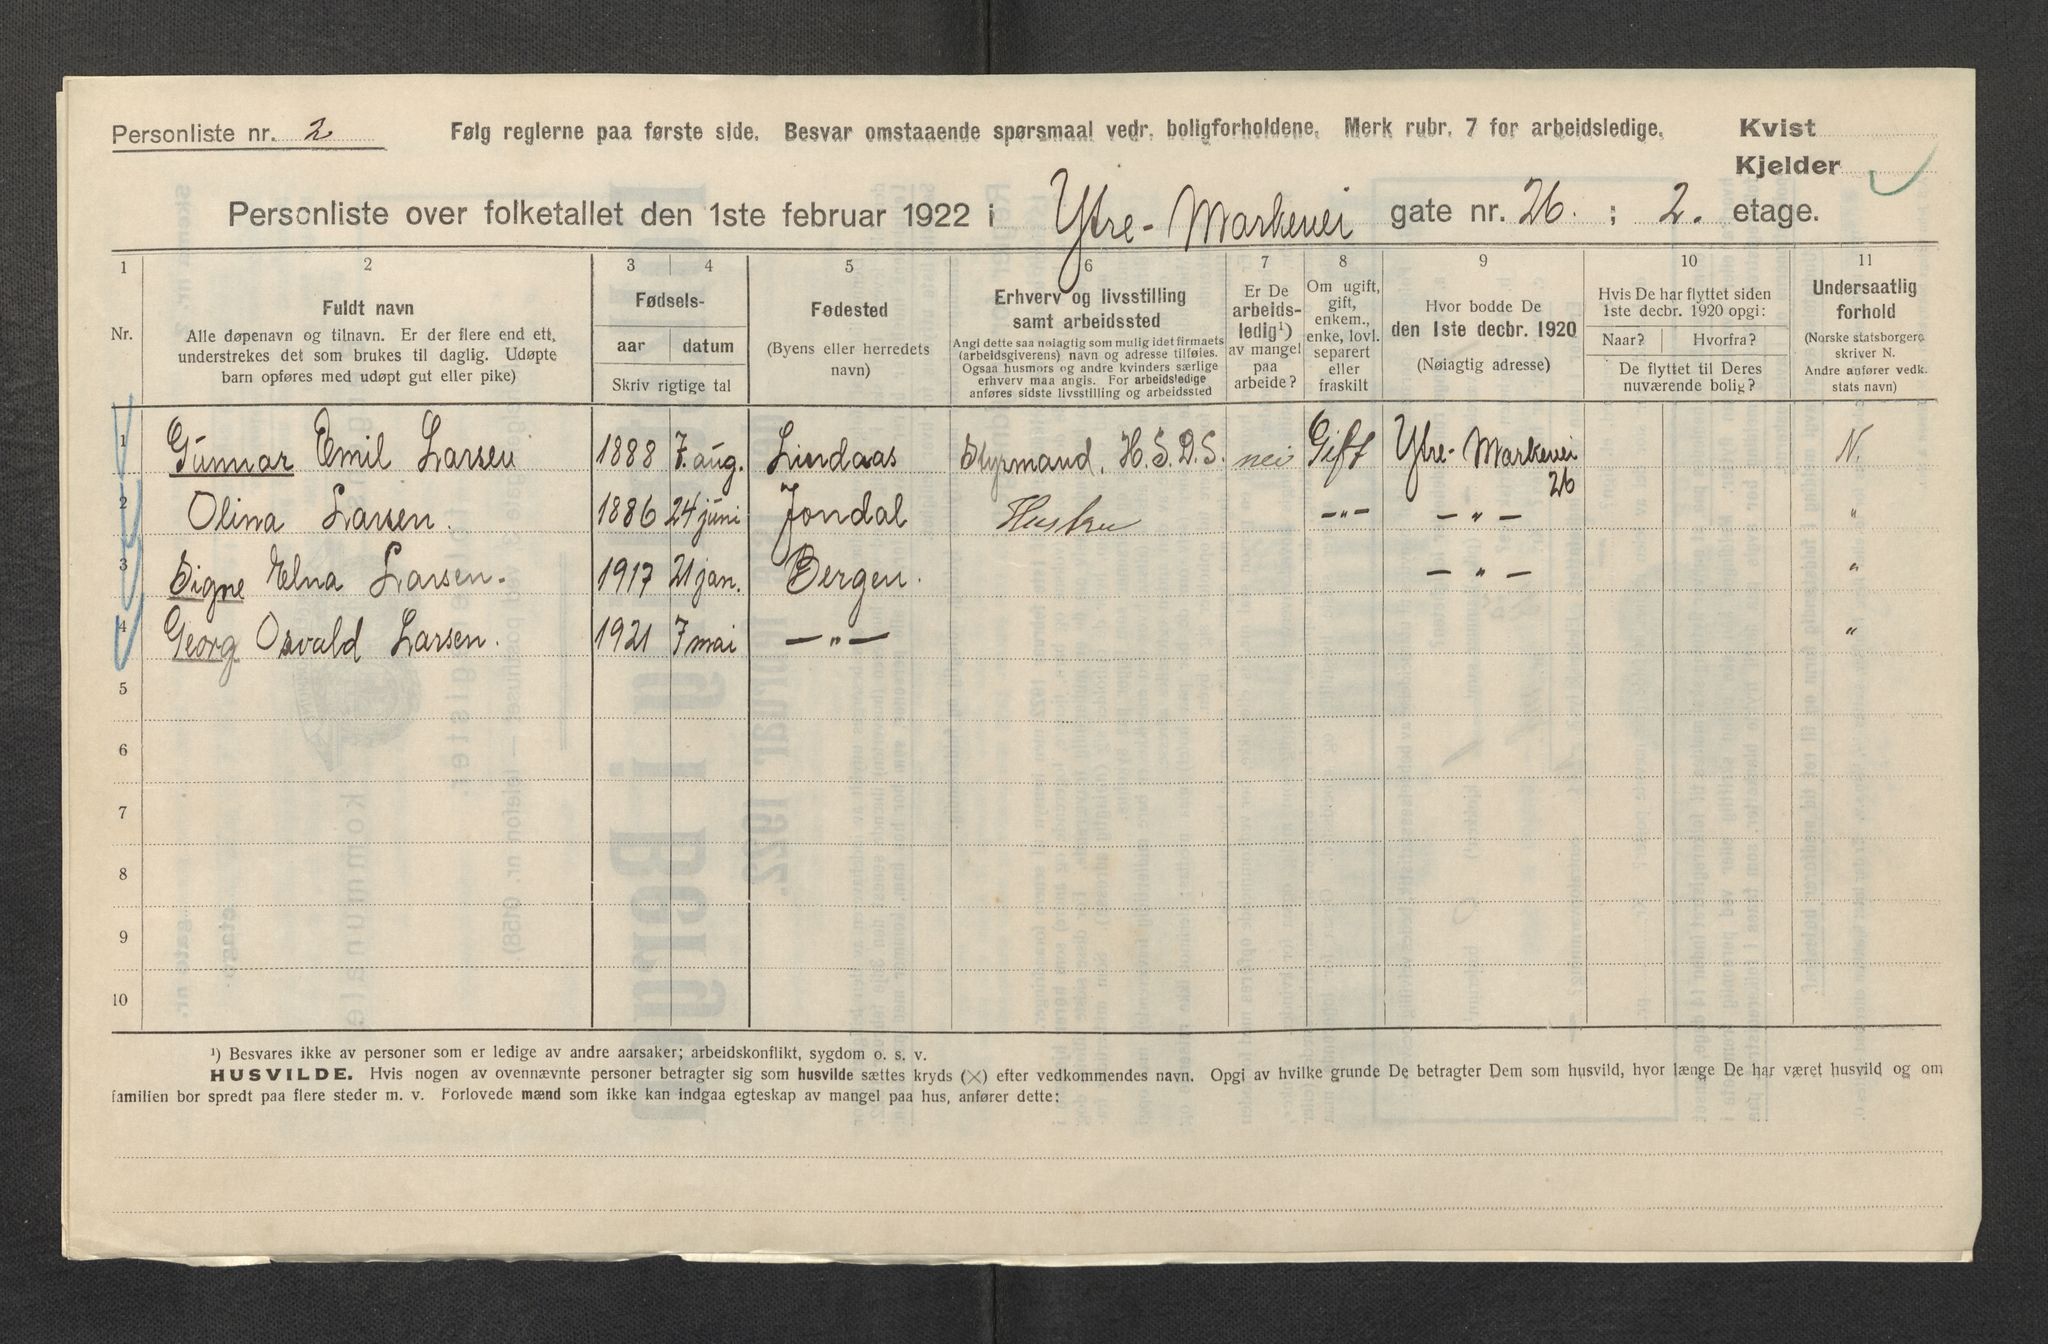 Personliste nr. 2 Følg reglerne paa første side. Besvar omstaaende spørsmaal vedr. boligforholdene. Merk rubr. 7 for arbeidsledige. Kvist
Kjelder
Personliste over folketallet den 1ste februar 1922 i Ytre-Markevei gate nr. 26. ; 2. etage.
1 2 3 4 5 6 7 8 9 10 11
Nr.
Fuldt navn
Alle døpenavn og tilnavn. Er der flere end ett,
understrekes det som brukes til daglig. Udøpte
barn opføres med udøpt gut eller pike)
Fødsels-
aar datum
Skriv rigtige tal
Fødested
(Byens eller herredets
navn)
Erhverv og livsstilling
samt arbeidssted
Angi dette saa nøiagtig som mulig idet firmaets
(arbeidsgiverens) navn og adresse tilføies.
Ogsaa husmors og andre kvinders særlige
erhverv maa angis. For arbeidsledige
anføres sidste livsstilling og arbeidssted
Er De
arbeids-
ledig¹)
av mangel
paa
arbeide?
Om ugift,
gift,
enkem.,
enke, lovl.
separert
eller
fraskilt
Hvor bodde De
den 1ste decbr. 1920
(Nøiagtig adresse)
Hvis De har flyttet siden
1ste decbr. 1920 opgi:
Naar? Hvorfra?
De flyttet til Deres
nuværende bolig?
Undersaatlig
forhold
(Norske statsborgere
skriver N.
Andre anfører vedk.
stats navn)
1 Gunnar Emil Larsen 1888 7. aug. Lindaas Styrmand. H. S. D. S. nei Gift Ytre-Markevei 26 N.
2 Olina Larsen. 1886 24 juni Jondal Hustru —"— — " — "
3 Signe Elna Larsen. 1917 21 jan. Bergen. — " — "
4 Georg Osvald Larsen. 1921 7 mai —"— "
5
6
7
8
9
10
¹) Besvares ikke av personer som er ledige av andre aarsaker; arbeidskonflikt, sygdom o. s. v.
HUSVILDE. Hvis nogen av ovennævnte personer betragter sig som husvilde sættes kryds (×) efter vedkommendes navn. Opgi av hvilke grunde De betragter Dem som husvild, hvor længe De har været husvild og om
familien bor spredt paa flere steder m. v. Forlovede mænd som ikke kan indgaa egteskap av mangel paa hus, anfører dette: